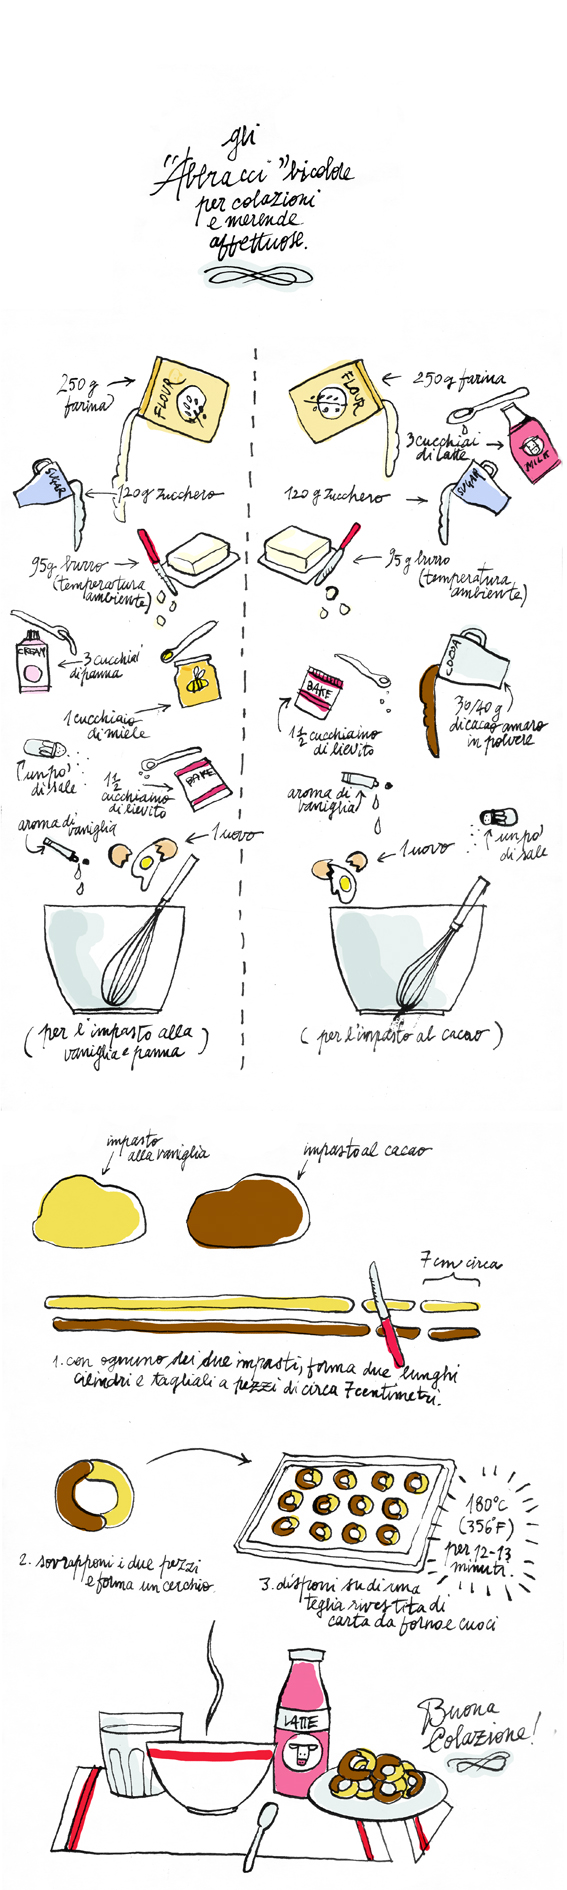 gli
"Abbracci" bicolore
per colazioni
e merende
affettuose.
250 g
farina
FLOUR
SUGAR
120 g zucchero
95 g burro
(temperatura
ambiente)
CREAM
3 cucchiai
di panna
1 cucchiaio
di miele
un po'
di sale
1 1/2
cucchiaino
di lievito
BAKE
aroma di
vaniglia
1 uovo
(per l'impasto alla
vaniglia e panna)
FLOUR
250 g farina
3 cucchiai
di latte
MILK
120 g zucchero
SUGAR
95 g burro
(temperatura
ambiente)
BAKE
1 1/2 cucchiaino
di lievito
COCOA
30/40 g
di cacao amaro
in polvere
aroma di
vaniglia
1 uovo
un po'
di sale
(per l'impasto al cacao)
impasto
alla vaniglia
impasto al cacao
7 cm circa
1. con ognuno dei due impasti, forma due lunghi
cilindri e tagliali a pezzi di circa 7 centimetri.
2. sovrapponi i due pezzi
e forma un cerchio.
180°C
(356°F)
per 12-13
minuti.
3. disponi su di una
teglia rivestita di
carta da forno e cuoci
LATTE
Buona
Colazione!